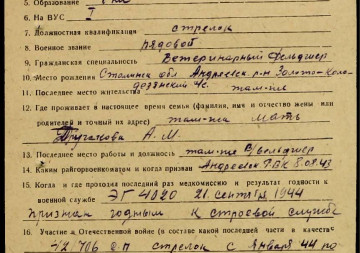 5. Образование
6. На ВУС I
7. Должностная квалификация стрелок
8. Военное звание рядовой
9. Гражданская специальность Ветеринарный Фельдшер
10. Место рождения Сталинск обл Андреевск. р-н Золото-Коло
дезянский с там-же
11. Последнее место жительства
12. Где проживает в настоящее время семья (фамилия, имя и отчество жены или
родителей и точный их адрес) там-же мать
А. М.
13. Последнее место работы и должность там-же В/фельдшер
14. Каким райгорвоенкоматом и когда призван Андреевск РВК 8.09.43
15. Когда и где проходил последний раз медкомиссию и результат годности к
военной службе ЭГ 4020 21 сентября 1944
признан годным к строевой службе
16. Участие в Отечественной войне (в составе какой последней части и в качестве
706 с.п стрелок с января 44 по